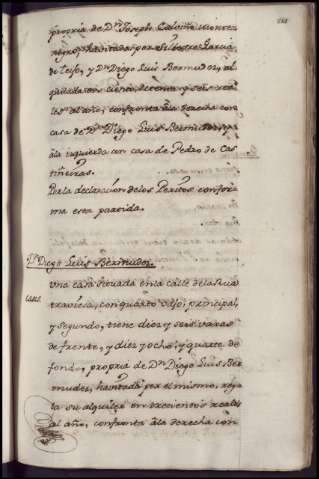 propria de Dn. Joseph Calviño Monrez
negro habitada por Silvestre Garcia
de Leis, y Dn. Diego Luis Bermudez, al
quilada en ciento, ochenta, y seis rea
les al año, confronta âla derecha con
casa de Dn. Diego Luis Bermudez, y
âla izquierda con casa de Pedro de Cas
tiñeiras.
Por la declaracion delos Peritos confor
ma esta partida.
Dn. Diego Luis Bermudez.
Casa.
Una casa situada en la calle de la Rua
traviesa, con quarto vajo, principal,
y segundo, tiene diez y seis varas
de frente, y diez y ocho, y quarto de
fondo, propria de Dn. Diego Luis Ber
mudez, havitada por el mismo, regula
la su alquiler en trecientos reales
al año, confronta âla derecha con